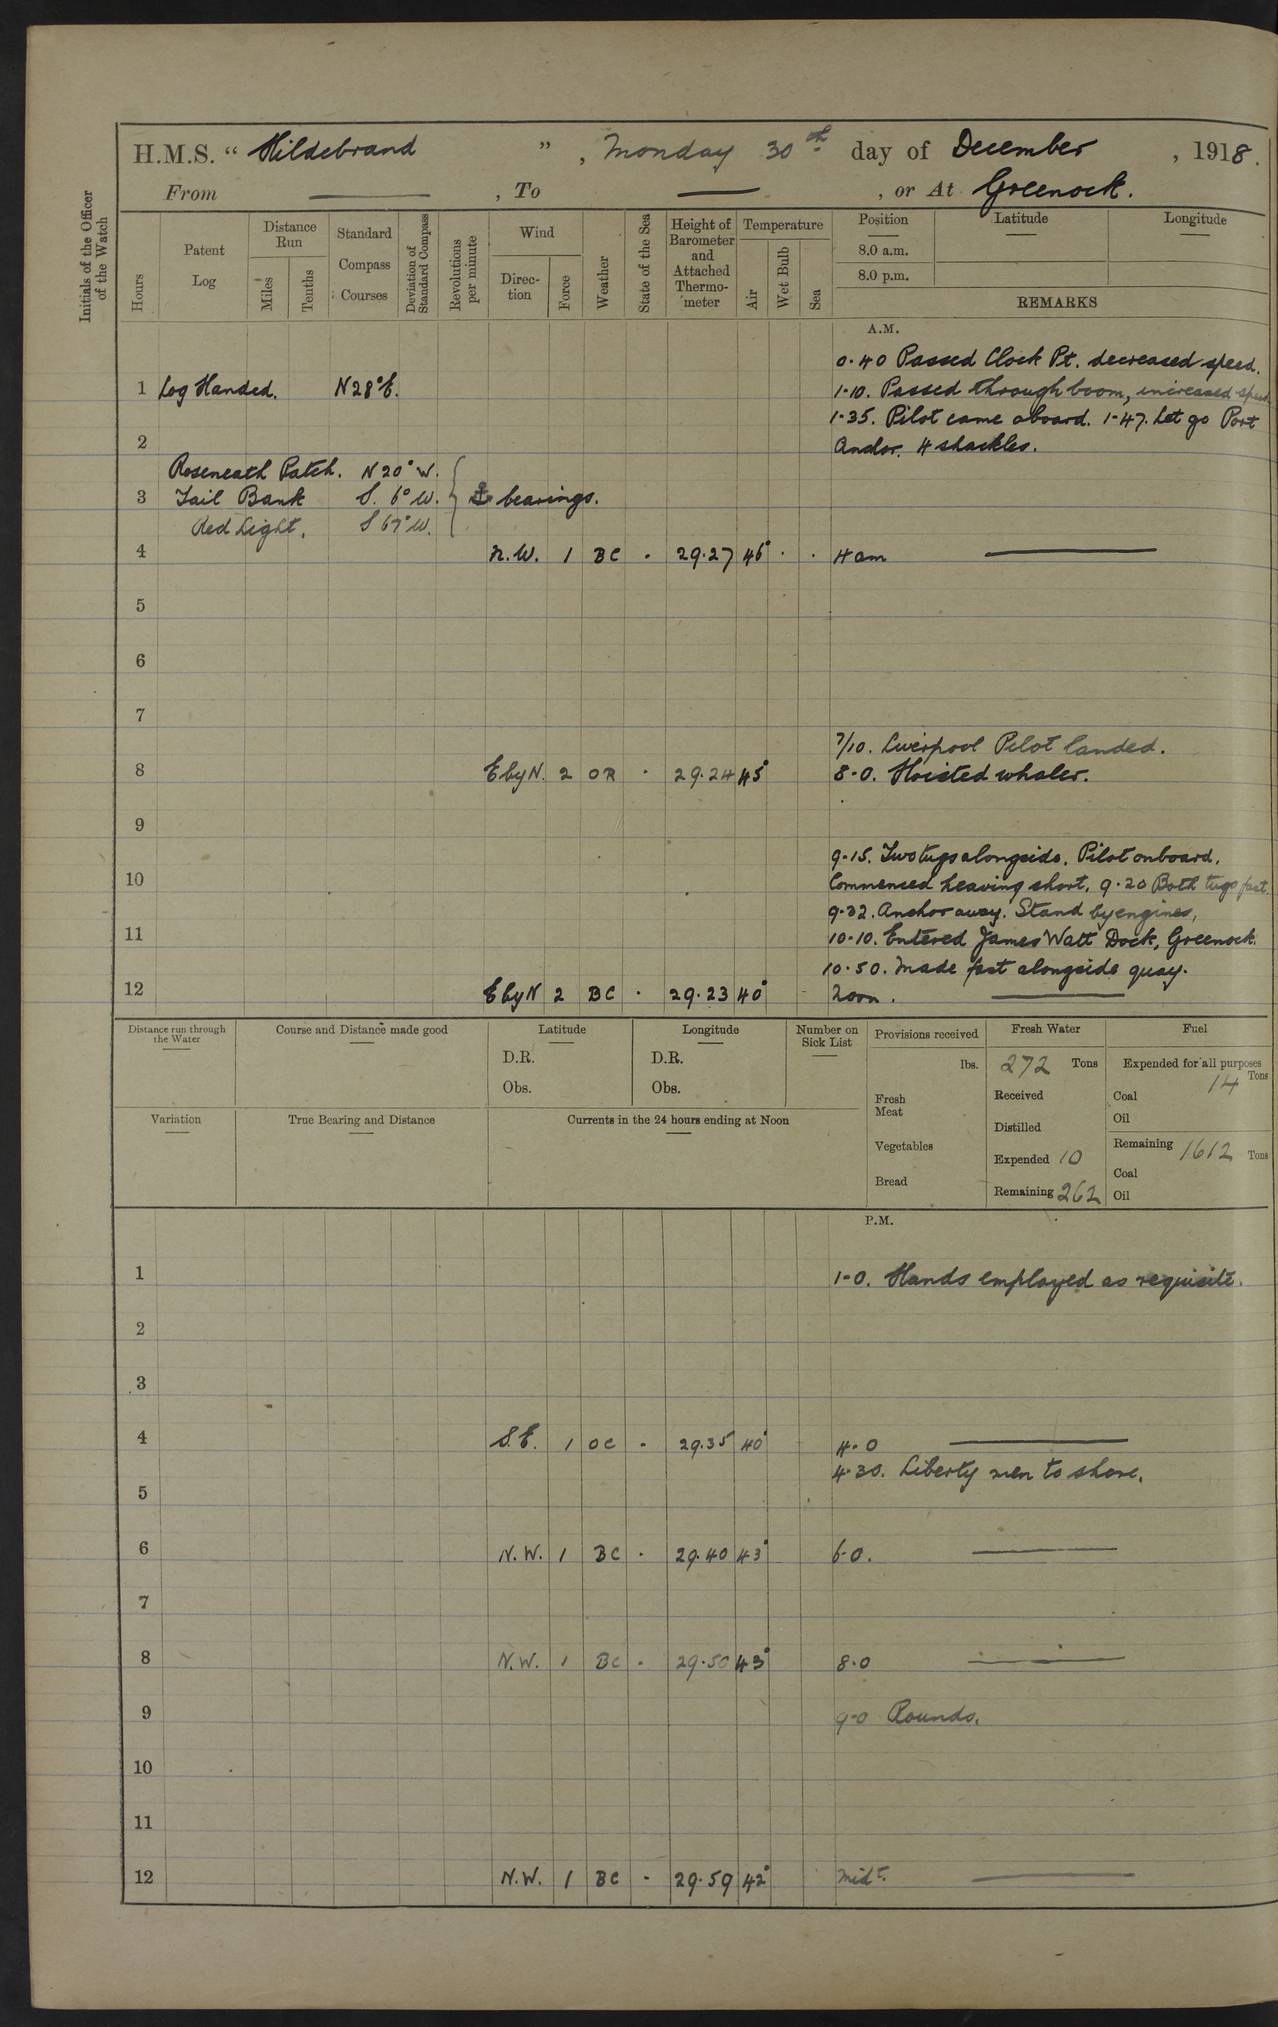 H.M.S. “ Hildebrand ” , Monday 30th day of December , 1918.
From ——— , To ——— , or At Greenock.
Initials of the Officer of the Watch
Hours
Patent Log
Distance Run
Miles
Tenths
Standard Compass Courses
Deviation of Standard Compass
Revolutions per minute
Wind
Direc-tion
Force
Weather
State of the Sea
Height of Barometer and Attached Thermo-meter
Temperature
Air
Wet Bulb
Sea
Position
Latitude
Longitude
8.0 a.m.
8.0 p.m.
REMARKS
A.M.
0.40 Passed Cloch Pt. decreased speed.
1 Log Handed. N28°E. 1-10. Passed through boom, increased speed
1-35. Pilot came aboard. 1-47. Let go Port
2 Anchor. 4 shackles.
Roseneath Patch. N20°W.
3 Tail Bank S. 6°W. ⚓ bearings.
Red Light. S 67°W.
4 N.W. 1 BC - 29.27 46° . . 4 am ———
5
6
7
7/10. Liverpool Pilot landed.
8 E by N. 2 OR - 29.24 45° 8-0. Hoisted whaler.
9
9-15. Two tugs alongside. Pilot onboard.
10 Commenced heaving short. 9-20 Both tugs fast
9-32. Anchor away. Stand by engines.
11 10-10. Entered James Watt Dock, Greenock.
10.50. Made fast alongside quay.
12 E by N 2 BC - 29.23 40° Noon. ———
Distance run through the Water
Course and Distance made good
Latitude
D.R.
Obs.
Longitude
D.R.
Obs.
Number on Sick List
Provisions received
lbs.
Fresh Meat
Vegetables
Bread
Fresh Water
272 Tons
Received
Distilled
Expended 10
Remaining 262
Fuel
Expended for all purposes
14 Tons
Coal
Oil
Remaining 1612 Tons
Coal
Oil
Variation
True Bearing and Distance
Currents in the 24 hours ending at Noon
P.M.
1 1-0. Hands employed as requisite.
2
3
4 S.E. 1 OC - 29.35 40° 4-0 ———
4-30. Liberty men to shore.
5
6 N.W. 1 BC - 29.40 43° 6-0. ———
7
8 N.W. 1 BC - 29.50 43° 8-0 ———
9 9-0 Rounds.
10
11
12 N.W. 1 BC - 29.59 42° Midt. ———